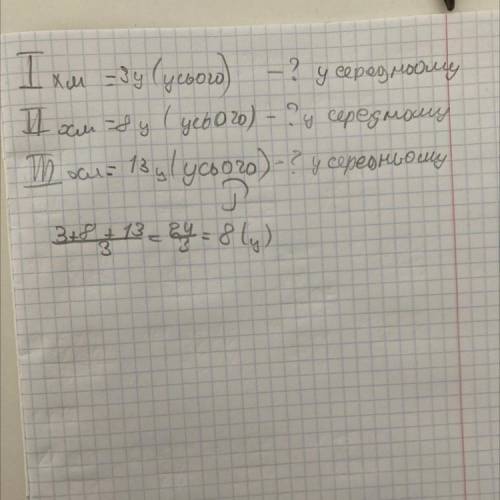 I хм = 3у (усього) - ? у середньому
II хм = 8 у (усього) - ? у середному
III хм = 13 у (усього) - ? у середньому
(3+8+13)/3 = 24/3 = 8 (у)